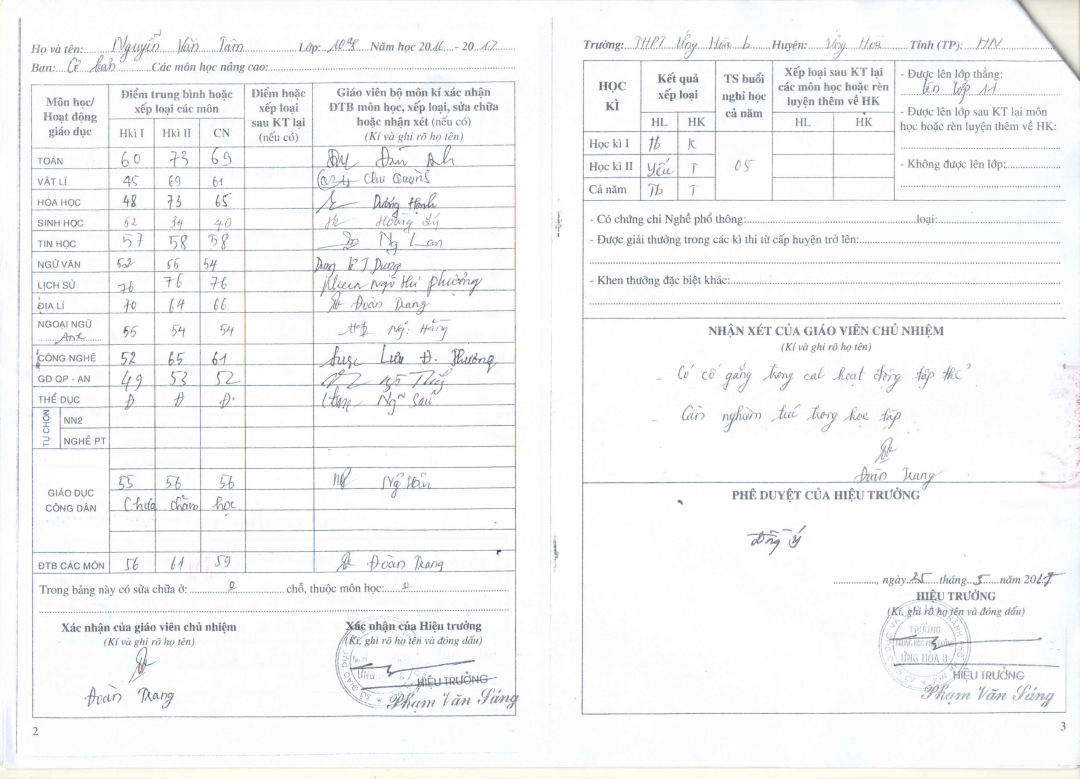 Họ và tên: Nguyễn Văn Tâm Lớp: 10 Năm học 2016 - 2017
Ban: Cơ bản Các môn học nâng cao:
Môn học/ Hoạt động giáo dục
Điểm trung bình hoặc xếp loại các môn
Hkì I Hkì II CN
Điểm hoặc xếp loại sau KT lại (nếu có)
Giáo viên bộ môn kí xác nhận ĐTB môn học, xếp loại, sửa chữa hoặc nhận xét (nếu có)
(Kí và ghi rõ họ tên)
TOÁN 60 73 69 Anh
VẬT LÍ 45 69 61 Chu Quỳnh
HÓA HỌC 48 73 65 Dương Hạnh
SINH HỌC 52 34 40 Hoàng Lý
TIN HỌC 57 58 58 Ng Lan
NGỮ VĂN 52 55 54 Dung
LỊCH SỬ 76 76 76 Ngô Thị Phượng
ĐỊA LÍ 70 64 66 Đoàn Trang
NGOẠI NGỮ Anh 55 54 54 Ng. Hằng
CÔNG NGHỆ 52 65 61 Đ. Phương
GD QP - AN 49 53 52 Thúy
THỂ DỤC Đ Đ Đ Ng Sáu
TỰ CHỌN
NN2
NGHỀ PT
GIÁO DỤC CÔNG DÂN
55 56 56 Ngô Hân
Chưa chăm học
ĐTB CÁC MÔN 56 61 59 Đoàn Trang
Trong bảng này có sửa chữa ở: 0 chỗ, thuộc môn học: 0
Xác nhận của giáo viên chủ nhiệm
(Kí và ghi rõ họ tên)
Đoàn Trang
Xác nhận của Hiệu trưởng
(Kí, ghi rõ họ tên và đóng dấu)
HIỆU TRƯỞNG
Phạm Văn Sáng
2
Trường: THPT Ứng Hòa b Huyện: Ứng Hòa Tỉnh (TP): HN
HỌC KÌ
Kết quả xếp loại
HL HK
TS buổi nghỉ học cả năm
Xếp loại sau KT lại các môn học hoặc rèn luyện thêm về HK
HL HK
Học kì I tb K
Học kì II Yếu T 05
Cả năm Tb T
- Được lên lớp thẳng:
Lên lớp 11
- Được lên lớp sau KT lại môn học hoặc rèn luyện thêm về HK:
- Không được lên lớp:
- Có chứng chỉ Nghề phổ thông: loại:
- Được giải thưởng trong các kì thi từ cấp huyện trở lên:
- Khen thưởng đặc biệt khác:
NHẬN XÉT CỦA GIÁO VIÊN CHỦ NHIỆM
(Kí và ghi rõ họ tên)
- Có cố gắng trong các hoạt động tập thể
Cần nghiêm túc trong học tập
Đoàn Trang
PHÊ DUYỆT CỦA HIỆU TRƯỞNG
Đồng ý
, ngày 25 tháng 5 năm 2017
HIỆU TRƯỞNG
(Kí, ghi rõ họ tên và đóng dấu)
TRƯỜNG
TRUNG HỌC PHỔ THÔNG
ỨNG HÒA B
HIỆU TRƯỞNG
Phạm Văn Sáng
3